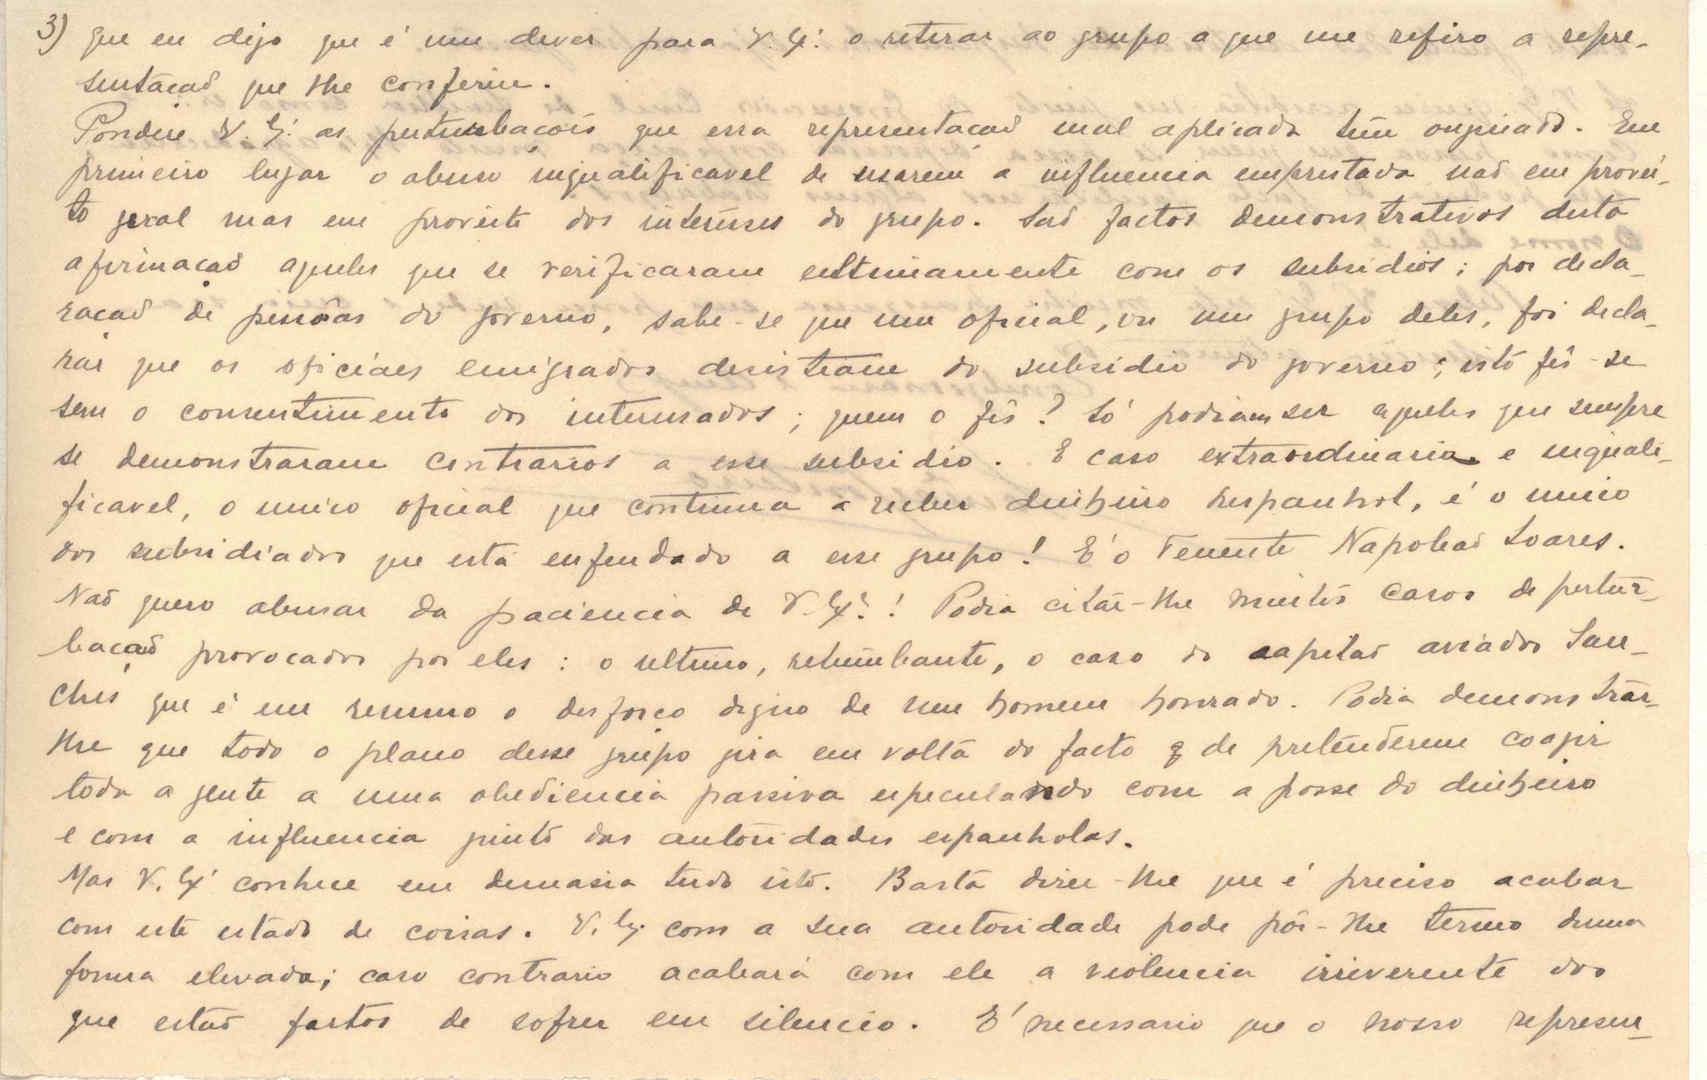 3) que eu digo que é um dever para V. Ex.ª o retirar ao grupo a que me refiro a repre-
sentação que lhe conferiu.
Pondere V. Ex.ª as perturbações que essa representação mal aplicada tem originado. Em
primeiro lugar o abuso inqualificavel de usarem a influencia emprestada não em provei-
to geral mas em proveito dos interesses do grupo. São factos demonstrativos desta
afirmação aqueles que se verificaram ultimamente com os subsidios; por decla-
ração de pessôas do governo, sabe-se que um oficial, ou um grupo deles, foi decla-
rar que os oficiáes emigrados desistiam do subsidio do governo; isto fês-se
sem o consentimento dos interessados; quem o fês? Só podiam ser aqueles que sempre
se demonstraram contrarios a esse subsidio. E caso extraordinario e inquali-
ficavel, o unico oficial que continua a receber dinheiro hespanhol, é o unico
dos subsidiados que está enfeudado a esse grupo! E' o Tenente Napoleão Soares.
Não quero abusar da paciencia de V. Ex.ª! Podia citar-lhe muitos casos de pertur-
bação provocados por eles: o ultimo, retumbante, o caso do capitão aviador San-
ches que é em resumo o desforço digno de um homem honrado. Podia demonstrar-
lhe que todo o plano desse grupo gira em volta do facto de pretenderem coagir
toda a gente a uma obediencia passiva especulando com a posse do dinheiro
e com a influencia junto das autoridades espanholas.
Mas V. Ex.ª conhece em demasia tudo isto. Basta dizer-lhe que é preciso acabar
com este estado de coisas. V. Ex.ª com a sua autoridade pode pôr-lhe termo duma
forma elevada; caso contrario acabará com ele a violencia irreverente dos
que estão fartos de sofrer em silencio. E' necessario que o nosso represen-